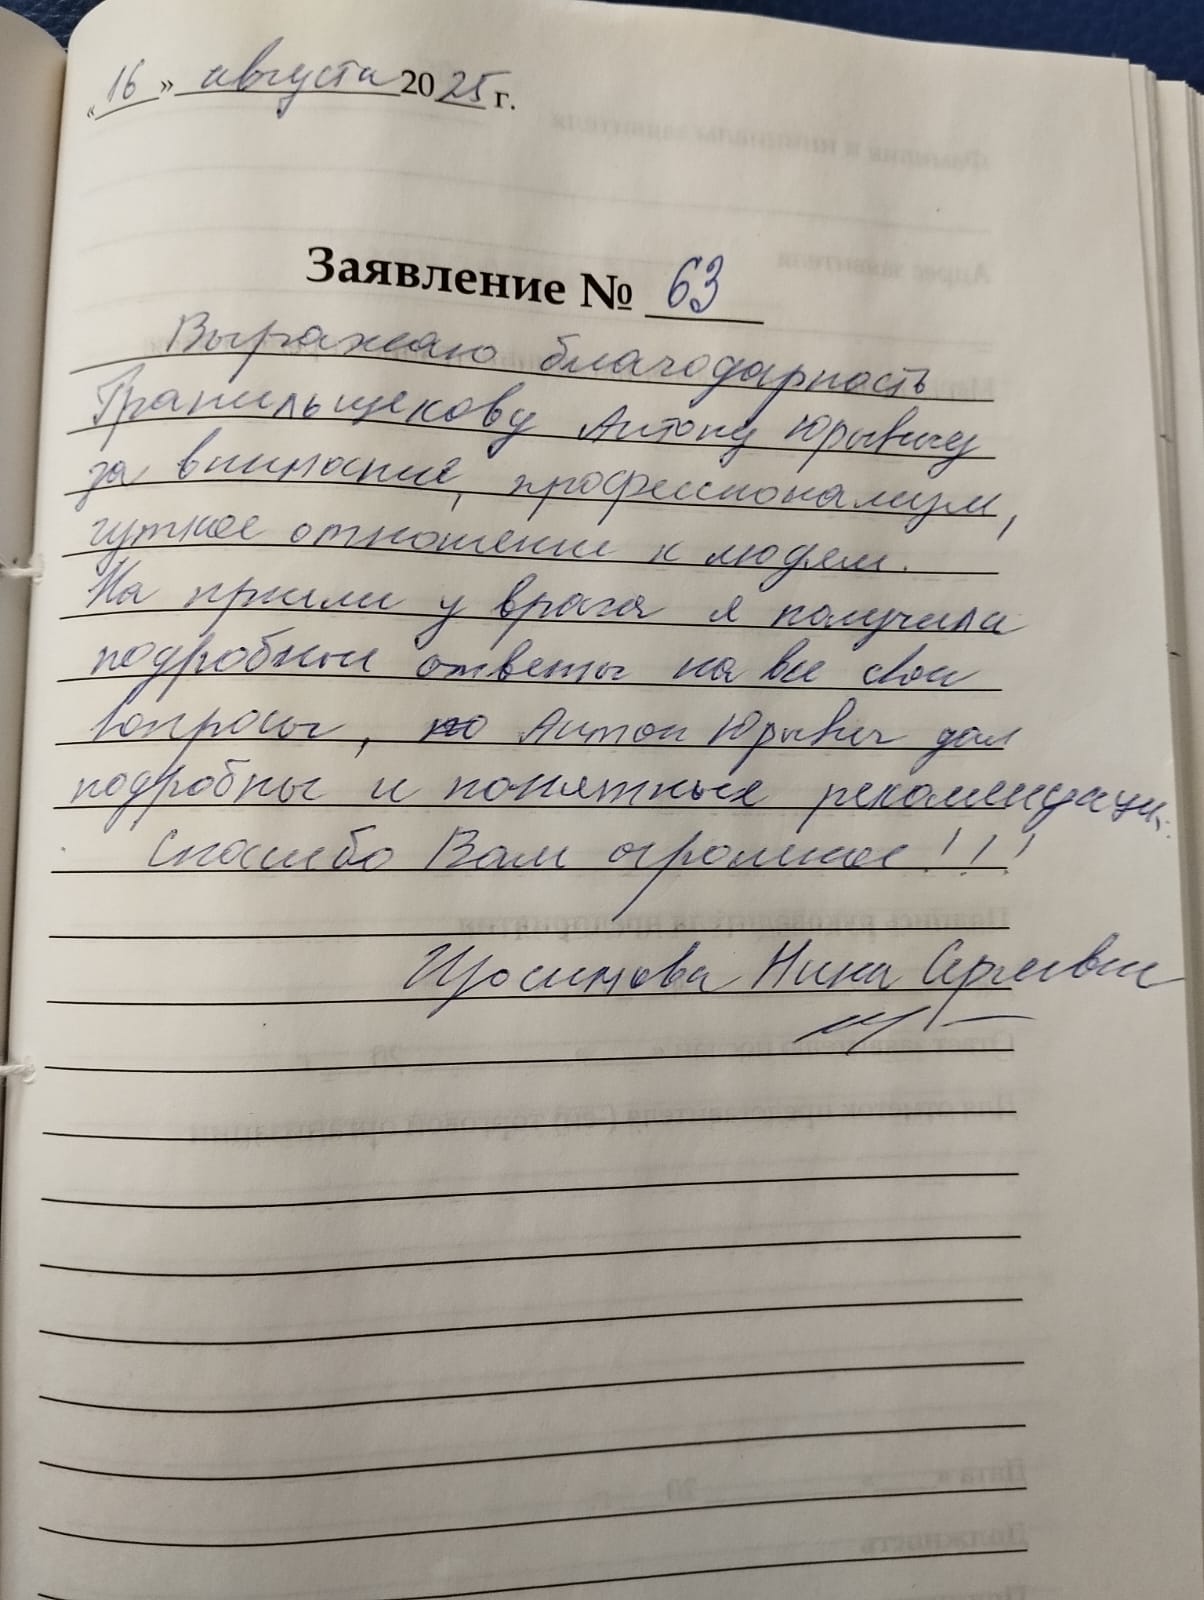 «16» августа 2025 г.
Заявление № 63
Выражаю благодарность
Гранильщекову Антону Юрьевичу
за внимание, профессионализм,
чуткое отношение к людям.
На приёме у врача я получила
подробные ответы на все свои
вопросы, Антон Юрьевич дал
подробны и понятные рекомендации.
Спасибо Вам огромное!!!
Нина Сергеевна